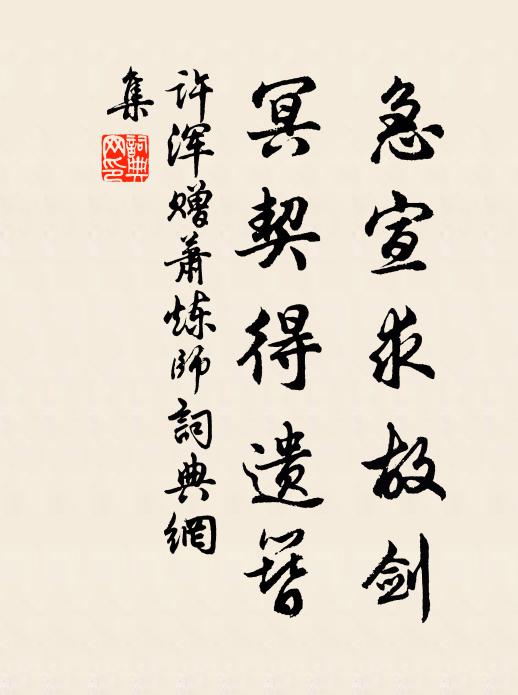 急宣求故剑
冥契得遗簪
许浑赠萧炼师词典網
集
詞典
网印